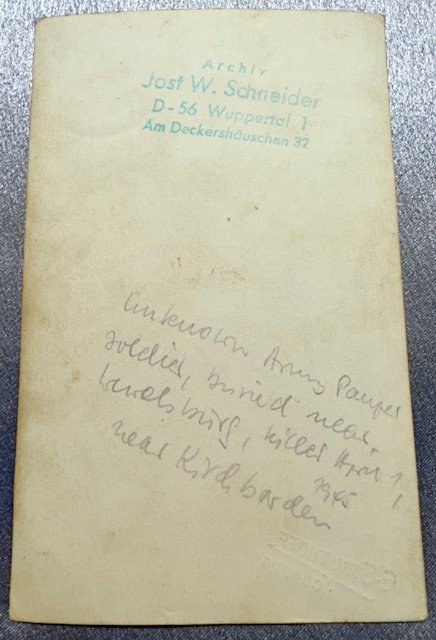 Archiv
Jost W. Schneider
D-56 Wuppertal 1
Am Deckershäuschen 32
unknown Army Panzer
soldier, buried near
killed April 1,
1945
near Kirchborchen